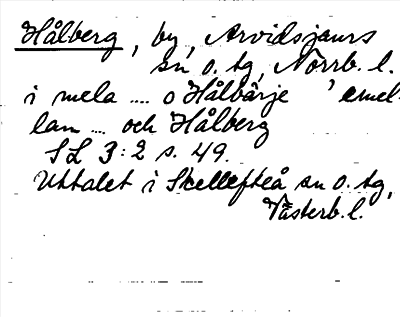 Hålberg, by, Arvidsjaurs
sn o. tg, Norrb. l.
i mela .... o Hålbärje 'emel-
lan .... och Hålberg
SL 3:2 s. 49.
Uttalet i Skellefteå sn o. tg,
Västerb. l.